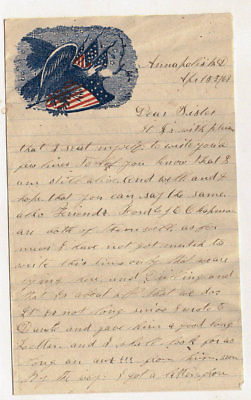 Annapolis Md
April 23/65
Dear Sister
It is with pleas
that I seat myself to write you a
few lines to let you know that I
am still alive and well and
hope that you can say the same
also Friends Ford & C Chapman
are both of them well, as for
news I have not got much to
write this time only that we are
and Drilling and
that is about all that we do
It is not long since I wrote to
and gave him a good long
Letter and I shall look for as
long an from him soon
By the way I got a letter from